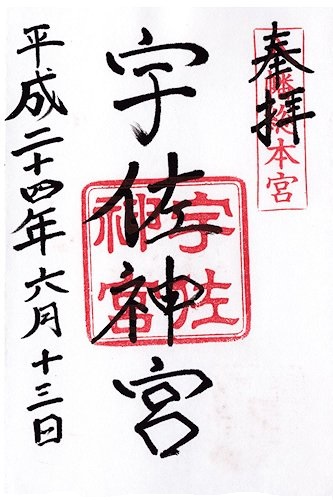 奉拝
八幡総本宮
宇佐神宮
宇佐
神宮
平成二十四年六月十三日